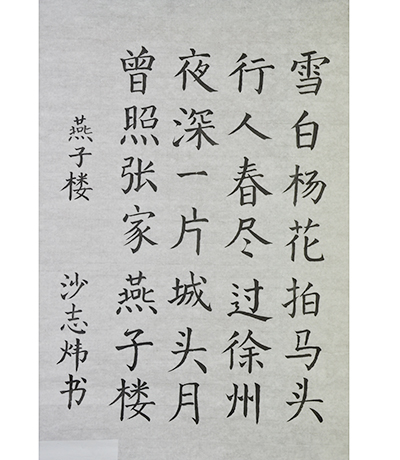 雪白杨花拍马头
行人春尽过徐州
夜深一片城头月
曾照张家燕子楼
燕子楼
沙志炜书